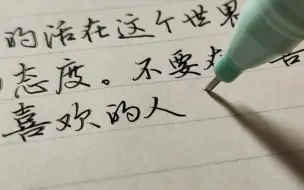 的活在这个世界
态度。不要在
喜欢的人